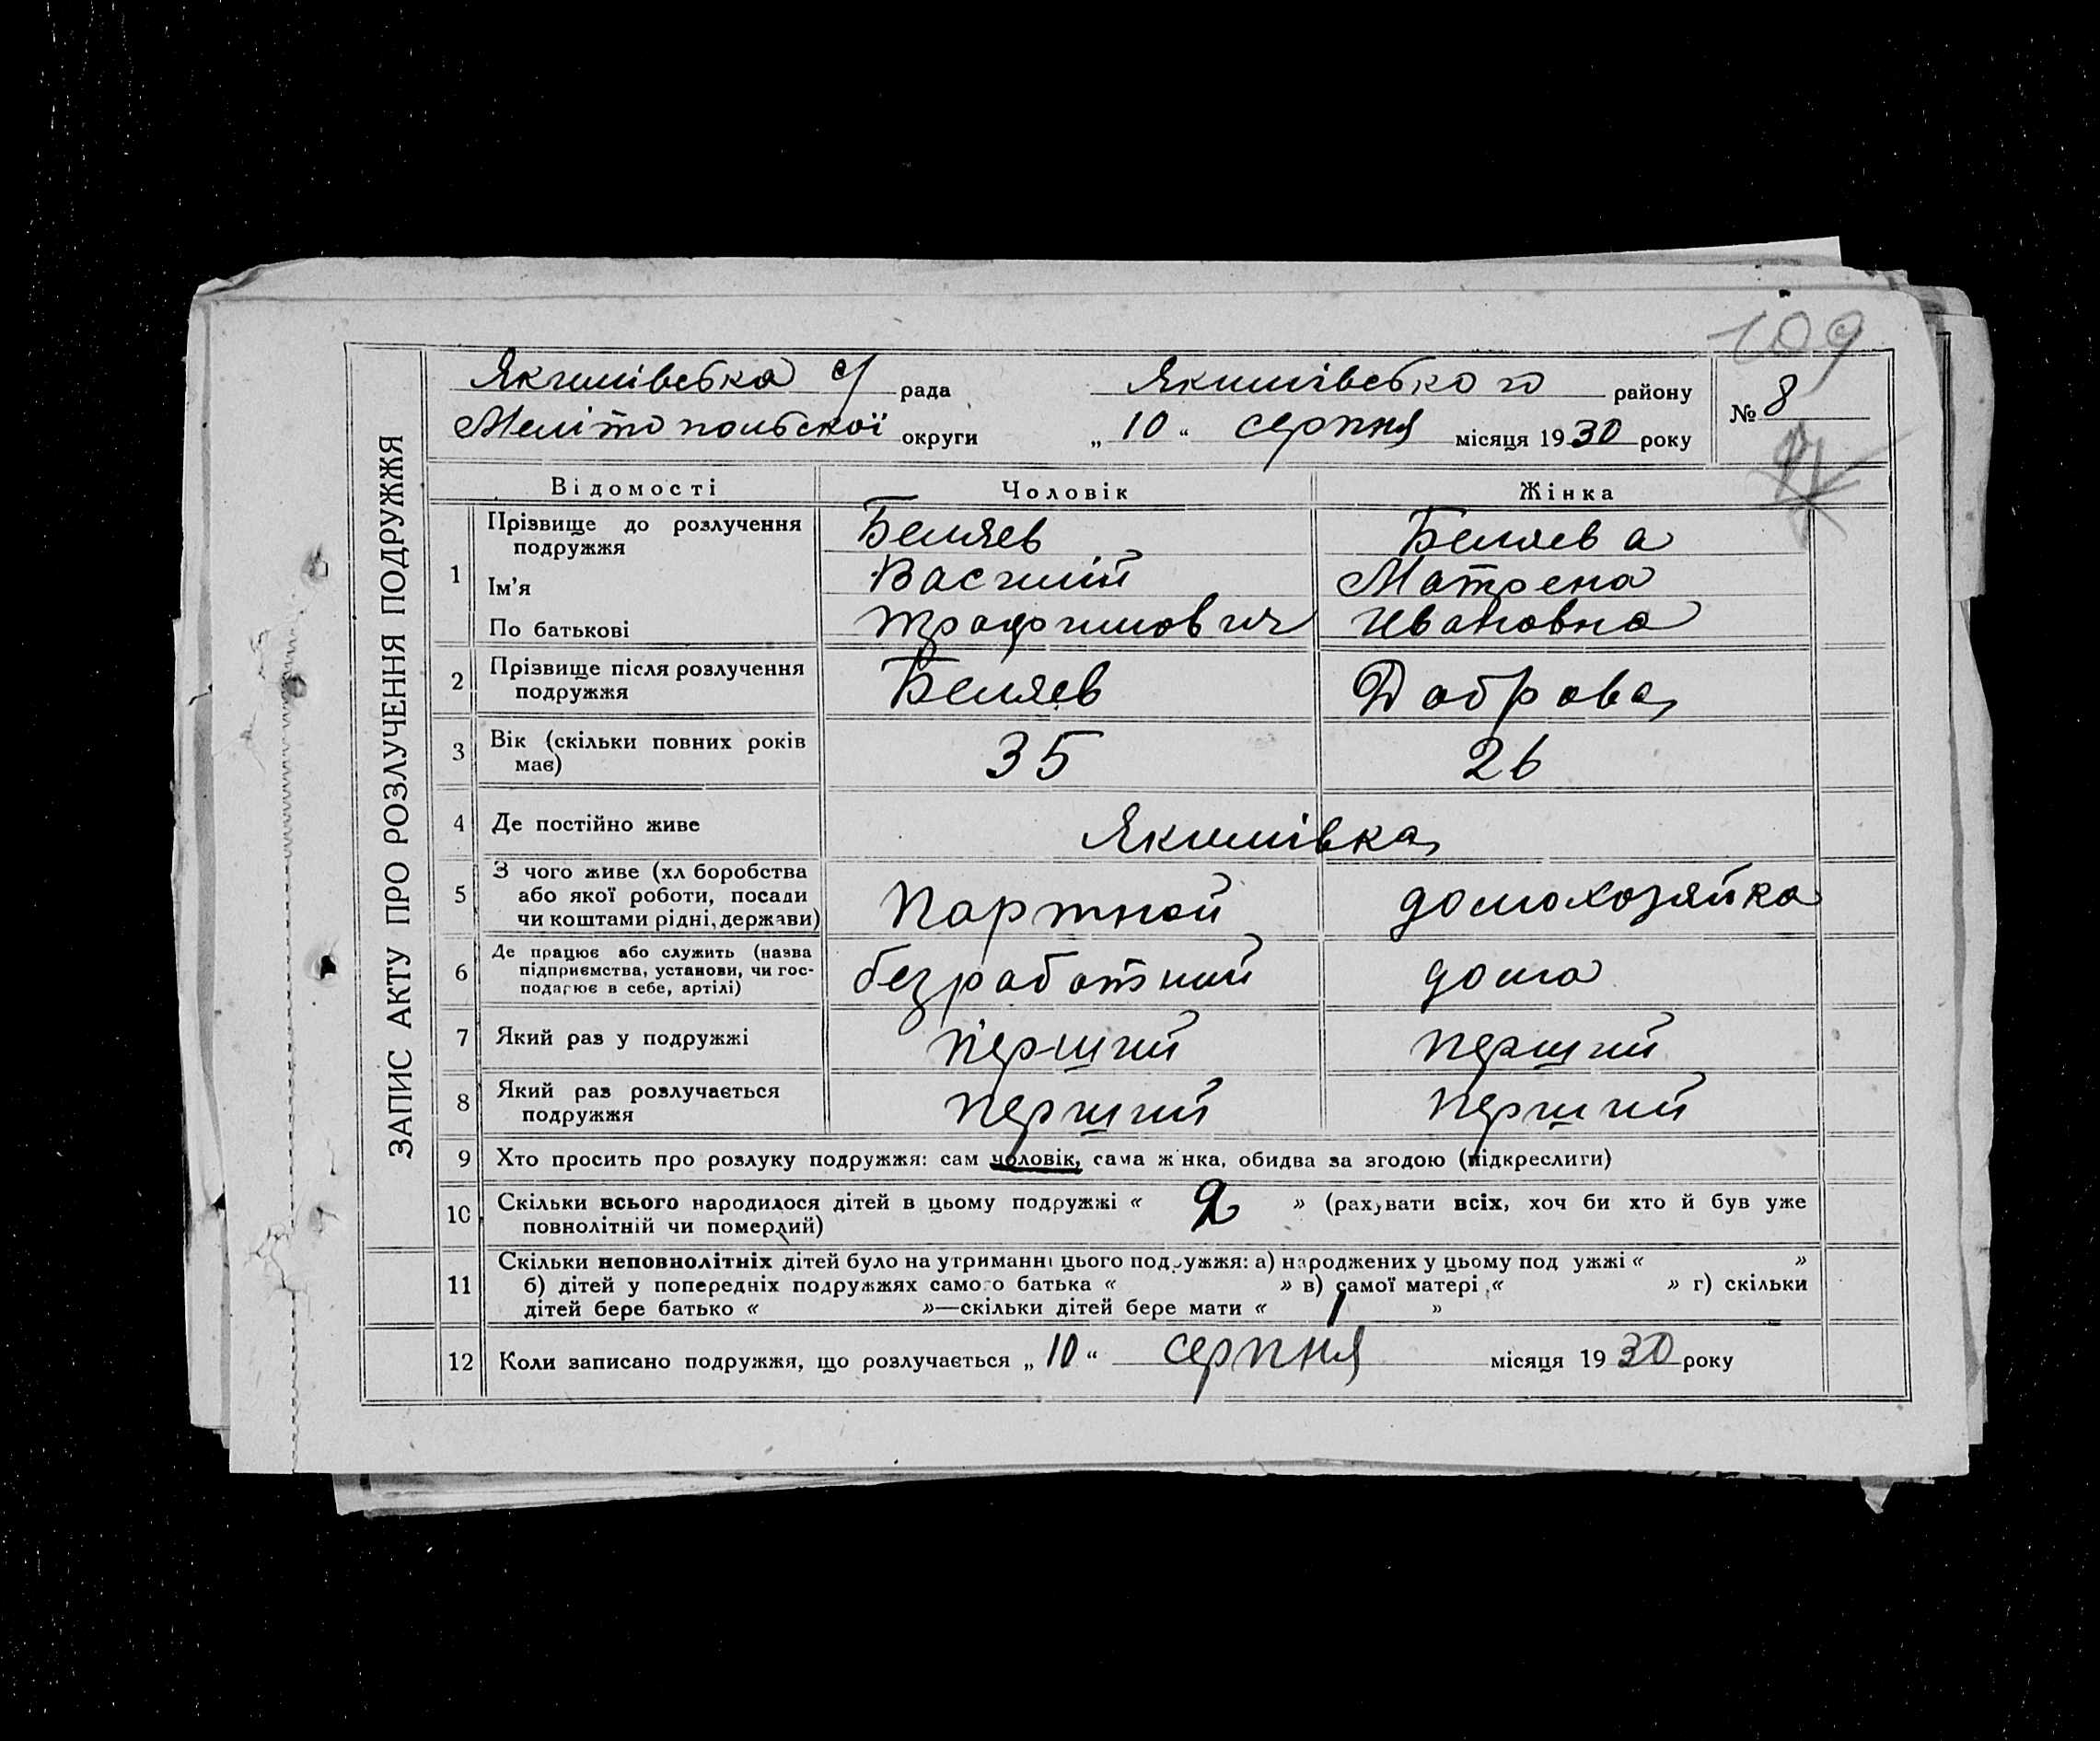 109
Якимівська с/ рада Якимівського району № 8
Мелітопольскої округи „ 10 “ серпня місяця 1930 року
ЗАПИС АКТУ ПРО РОЗЛУЧЕННЯ ПОДРУЖЖЯ
Відомості Чоловік Жінка
1 Прізвище до розлучення Беляев Беляева
подружжя
Ім'я Василій Матрена
По батькові Трофимович Ивановна
2 Прізвище після розлучення Беляев Доброва
подружжя
3 Вік (скільки повних років 35 26
має)
4 Де постійно живе Якимівка
5 З чого живе (хл боробства
або якої роботи, посади Портной домохозяйка
чи коштами рідні, держави)
6 Де працює або служить (назва
підприємства, установи, чи гос- безработний дома
подарює в себе, артілі)
7 Який раз у подружжі перший перший
8 Який раз розлучається перший перший
подружжя
9 Хто просить про розлуку подружжя: сам чоловік, сама ж нка, обидва за згодою (підкреслити)
10 Скільки всього народилося дітей в цьому подружжі « 2 » (рахувати всіх, хоч би хто й був уже
повнолітній чи померлий)
11 Скільки неповнолітніх дітей було на утриманні цього подружжя: а) народжених у цьому под ужжі « »
б) дітей у попередніх подружжях самого батька « » в) самої матері « » г) скільки
дітей бере батько « »—скільки дітей бере мати « 1 »
12 Коли записано подружжя, що розлучається „ 10 “ серпня місяця 1930 року